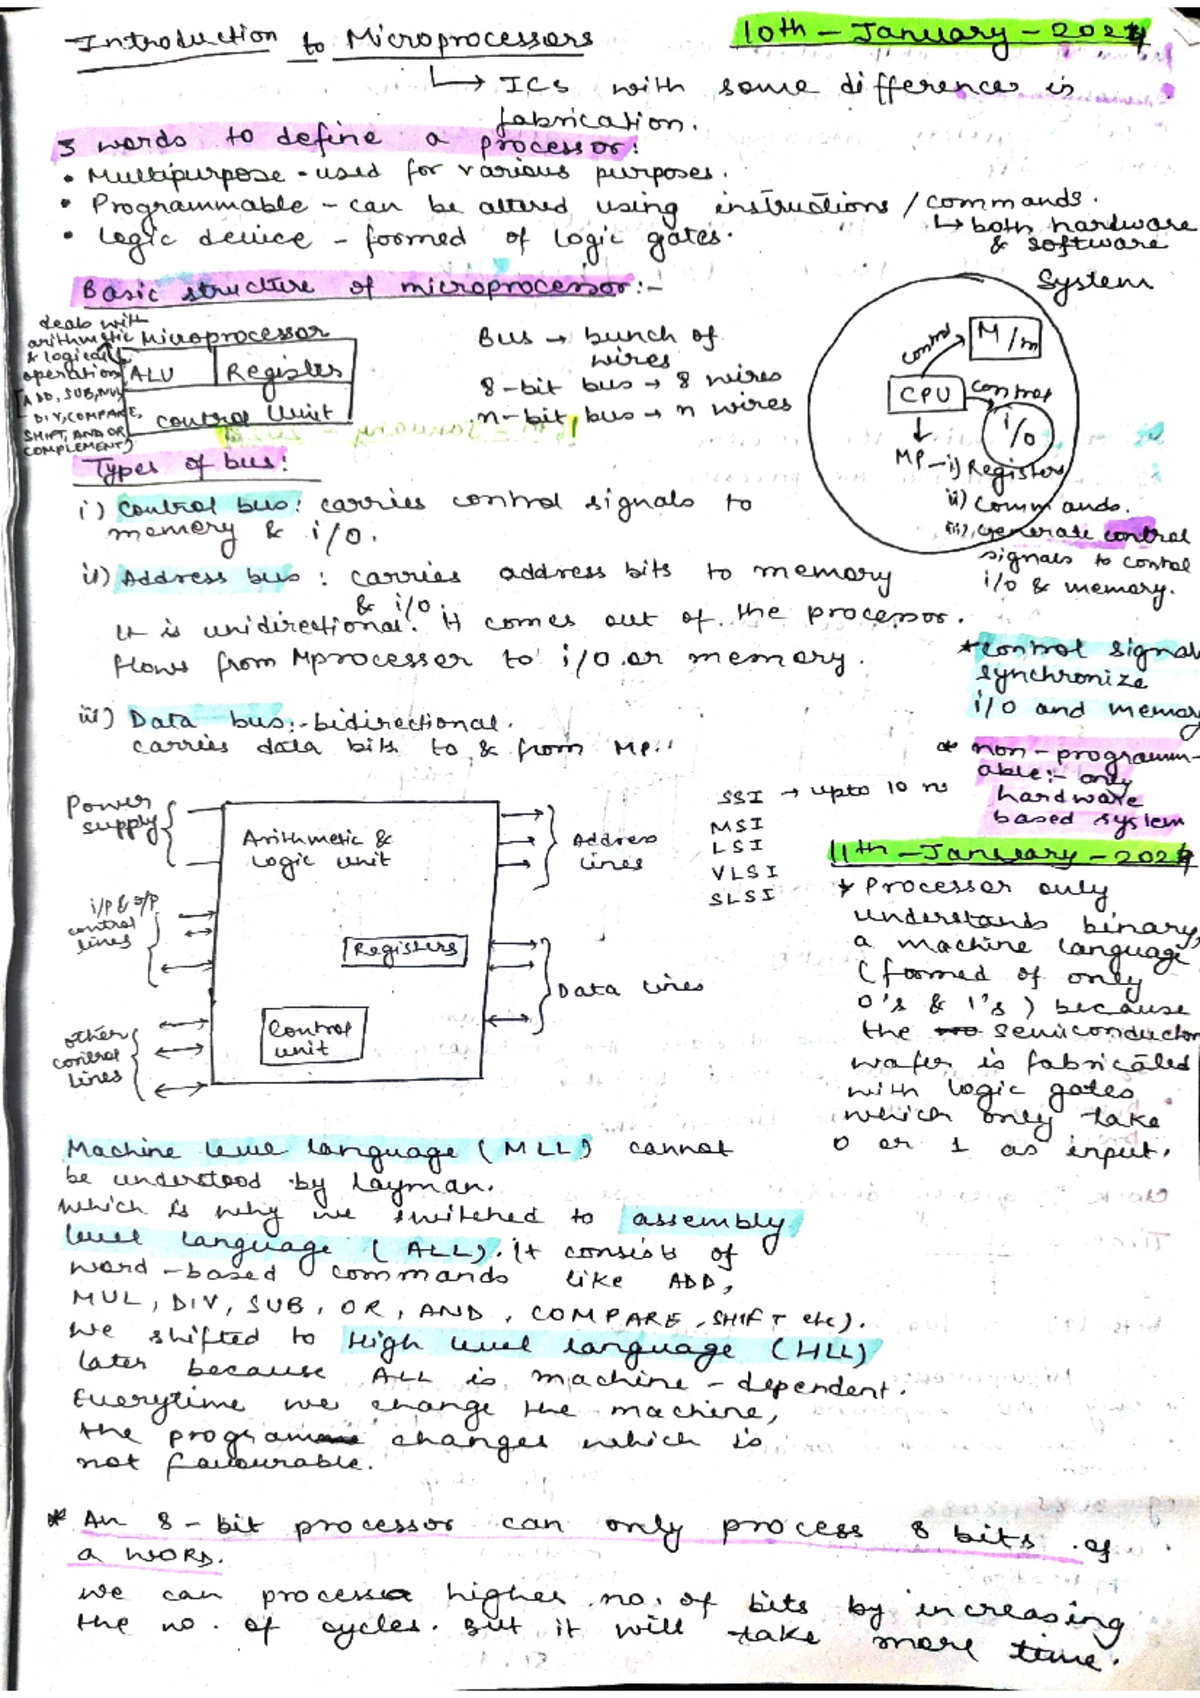 Introduction to Microprocessors
10th-January-2024
↳ ICs with some differences in
fabrication.
3 words to define a processor:
• Multipurpose - used for various purposes.
• Programmable - can be altered using instructions / commands.
↳ both hardware
& software
• Logic device - formed of logic gates.
Basic structure of microprocessor:-
deals with
arithmetic
& logical
operation
[ADD, SUB, MUL
DIV, COMPARE,
SHIFT, AND OR
COMPLEMENT]
Microprocessor
ALU
Register
Control Unit
Bus → bunch of
wires
8-bit bus → 8 wires
n-bit bus → n wires
System
control
M/m
CPU
control
i/o
MP - i) Registers
ii) Commands.
iii) Generate control
signals to control
i/o & memory.
Types of bus:
i) Control bus: carries control signals to
memory & i/o.
ii) Address bus: carries address bits to memory
& i/o.
It is unidirectional. It comes out of the processor.
flows from Mprocesser to i/o or memory.
* control signal
synchronize
i/o and memory
iii) Data bus:- bidirectional.
carries data bits to & from MP.
* non-programm-
able:- only
hardware
based system
Power
supply
i/P & O/P
control
lines
other
control
lines
Arithmetic &
Logic unit
Registers
Control
unit
Address
lines
Data lines
SSI → upto 10 ns
MSI
LSI
VLSI
SLSI
11th-January-2024
* Processor only
understands binary,
a machine language
(formed of only
0's & 1's) because
the semiconductor
wafer is fabricated
with logic gates
which only take
0 or 1 as input.
Machine level language (MLL) cannot
be understood by layman.
which is why we switched to assembly
level language (ALL). It consists of
word-based commands like ADD,
MUL, DIV, SUB, OR, AND, COMPARE, SHIFT etc).
We shifted to High level language (HLL)
later because ALL is machine-dependent.
Everytime we change the machine,
the program changes which is
not favourable.
* An 8-bit processor can only process 8 bits of
a WORD.
We can process higher no. of bits by increasing
the no. of cycles. But it will take more time.